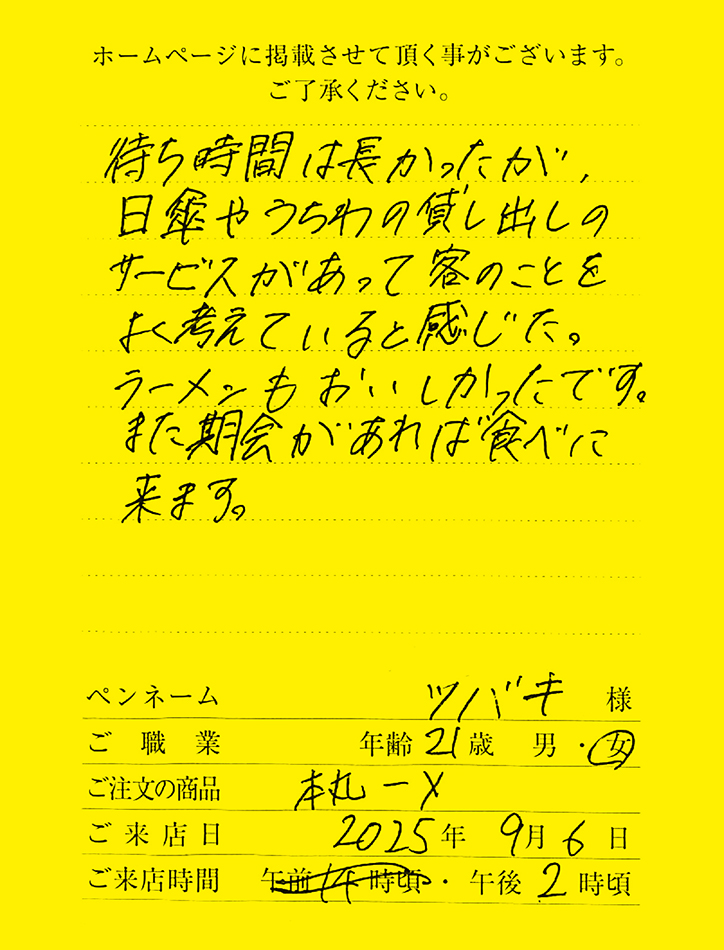 ホームページに掲載させて頂く事がございます。
ご了承ください。
待ち時間は長かったが、
日傘やうちわの貸し出しの
サービスがあって客のことを
よく考えていると感じた。
ラーメンもおいしかったです。
また期会があれば食べに
来ます。
ペンネーム ツバキ 様
ご職業 年齢 21 歳 男・女
ご注文の商品 本丸一メ
ご来店日 2025年 9月 6日
ご来店時間 午前 時頃・午後 2 時頃